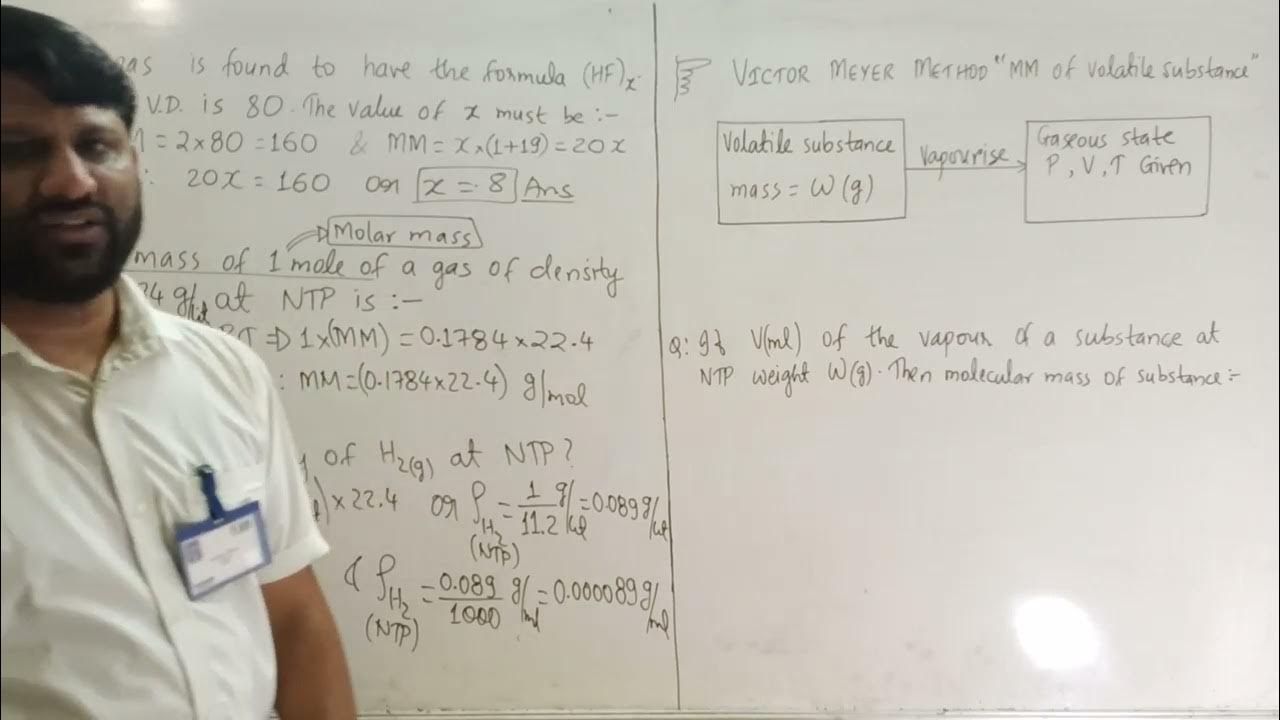 gas is found to have the formula (HF)x.
V.D. is 80. The value of x must be :-
= 2×80 = 160 & MM = x×(1+19) = 20x
20x = 160 or x = 8 Ans
Molar mass
mass of 1 mole of a gas of density
g/lit at NTP is :-
⇒ 1×(MM) = 0.1784×22.4
: MM = (0.1784×22.4) g/mol
of H2(g) at NTP?
×22.4 or ρH2 = 1/11.2 g/lit = 0.089 g/lit
(NTP)
& ρH2 = 0.089/1000 g/ml = 0.000089 g/ml
(NTP)
VICTOR MEYER METHOD "MM of volatile substance"
Volatile substance
mass = W(g)
Vapourise
Gaseous state
P, V, T Given
Q: If V(ml) of the vapour of a substance at
NTP weight W(g). Then molecular mass of substance :-